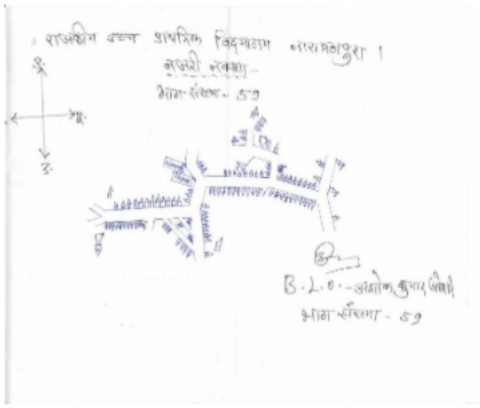 राजकीय उच्च प्राथमिक विद्यालय नारायणपुरा ।
नजरी नक्शा
भाग संख्या - 59
उ.
पू.
द.
B.L.O. - अशोक कुमार
भाग संख्या - 59